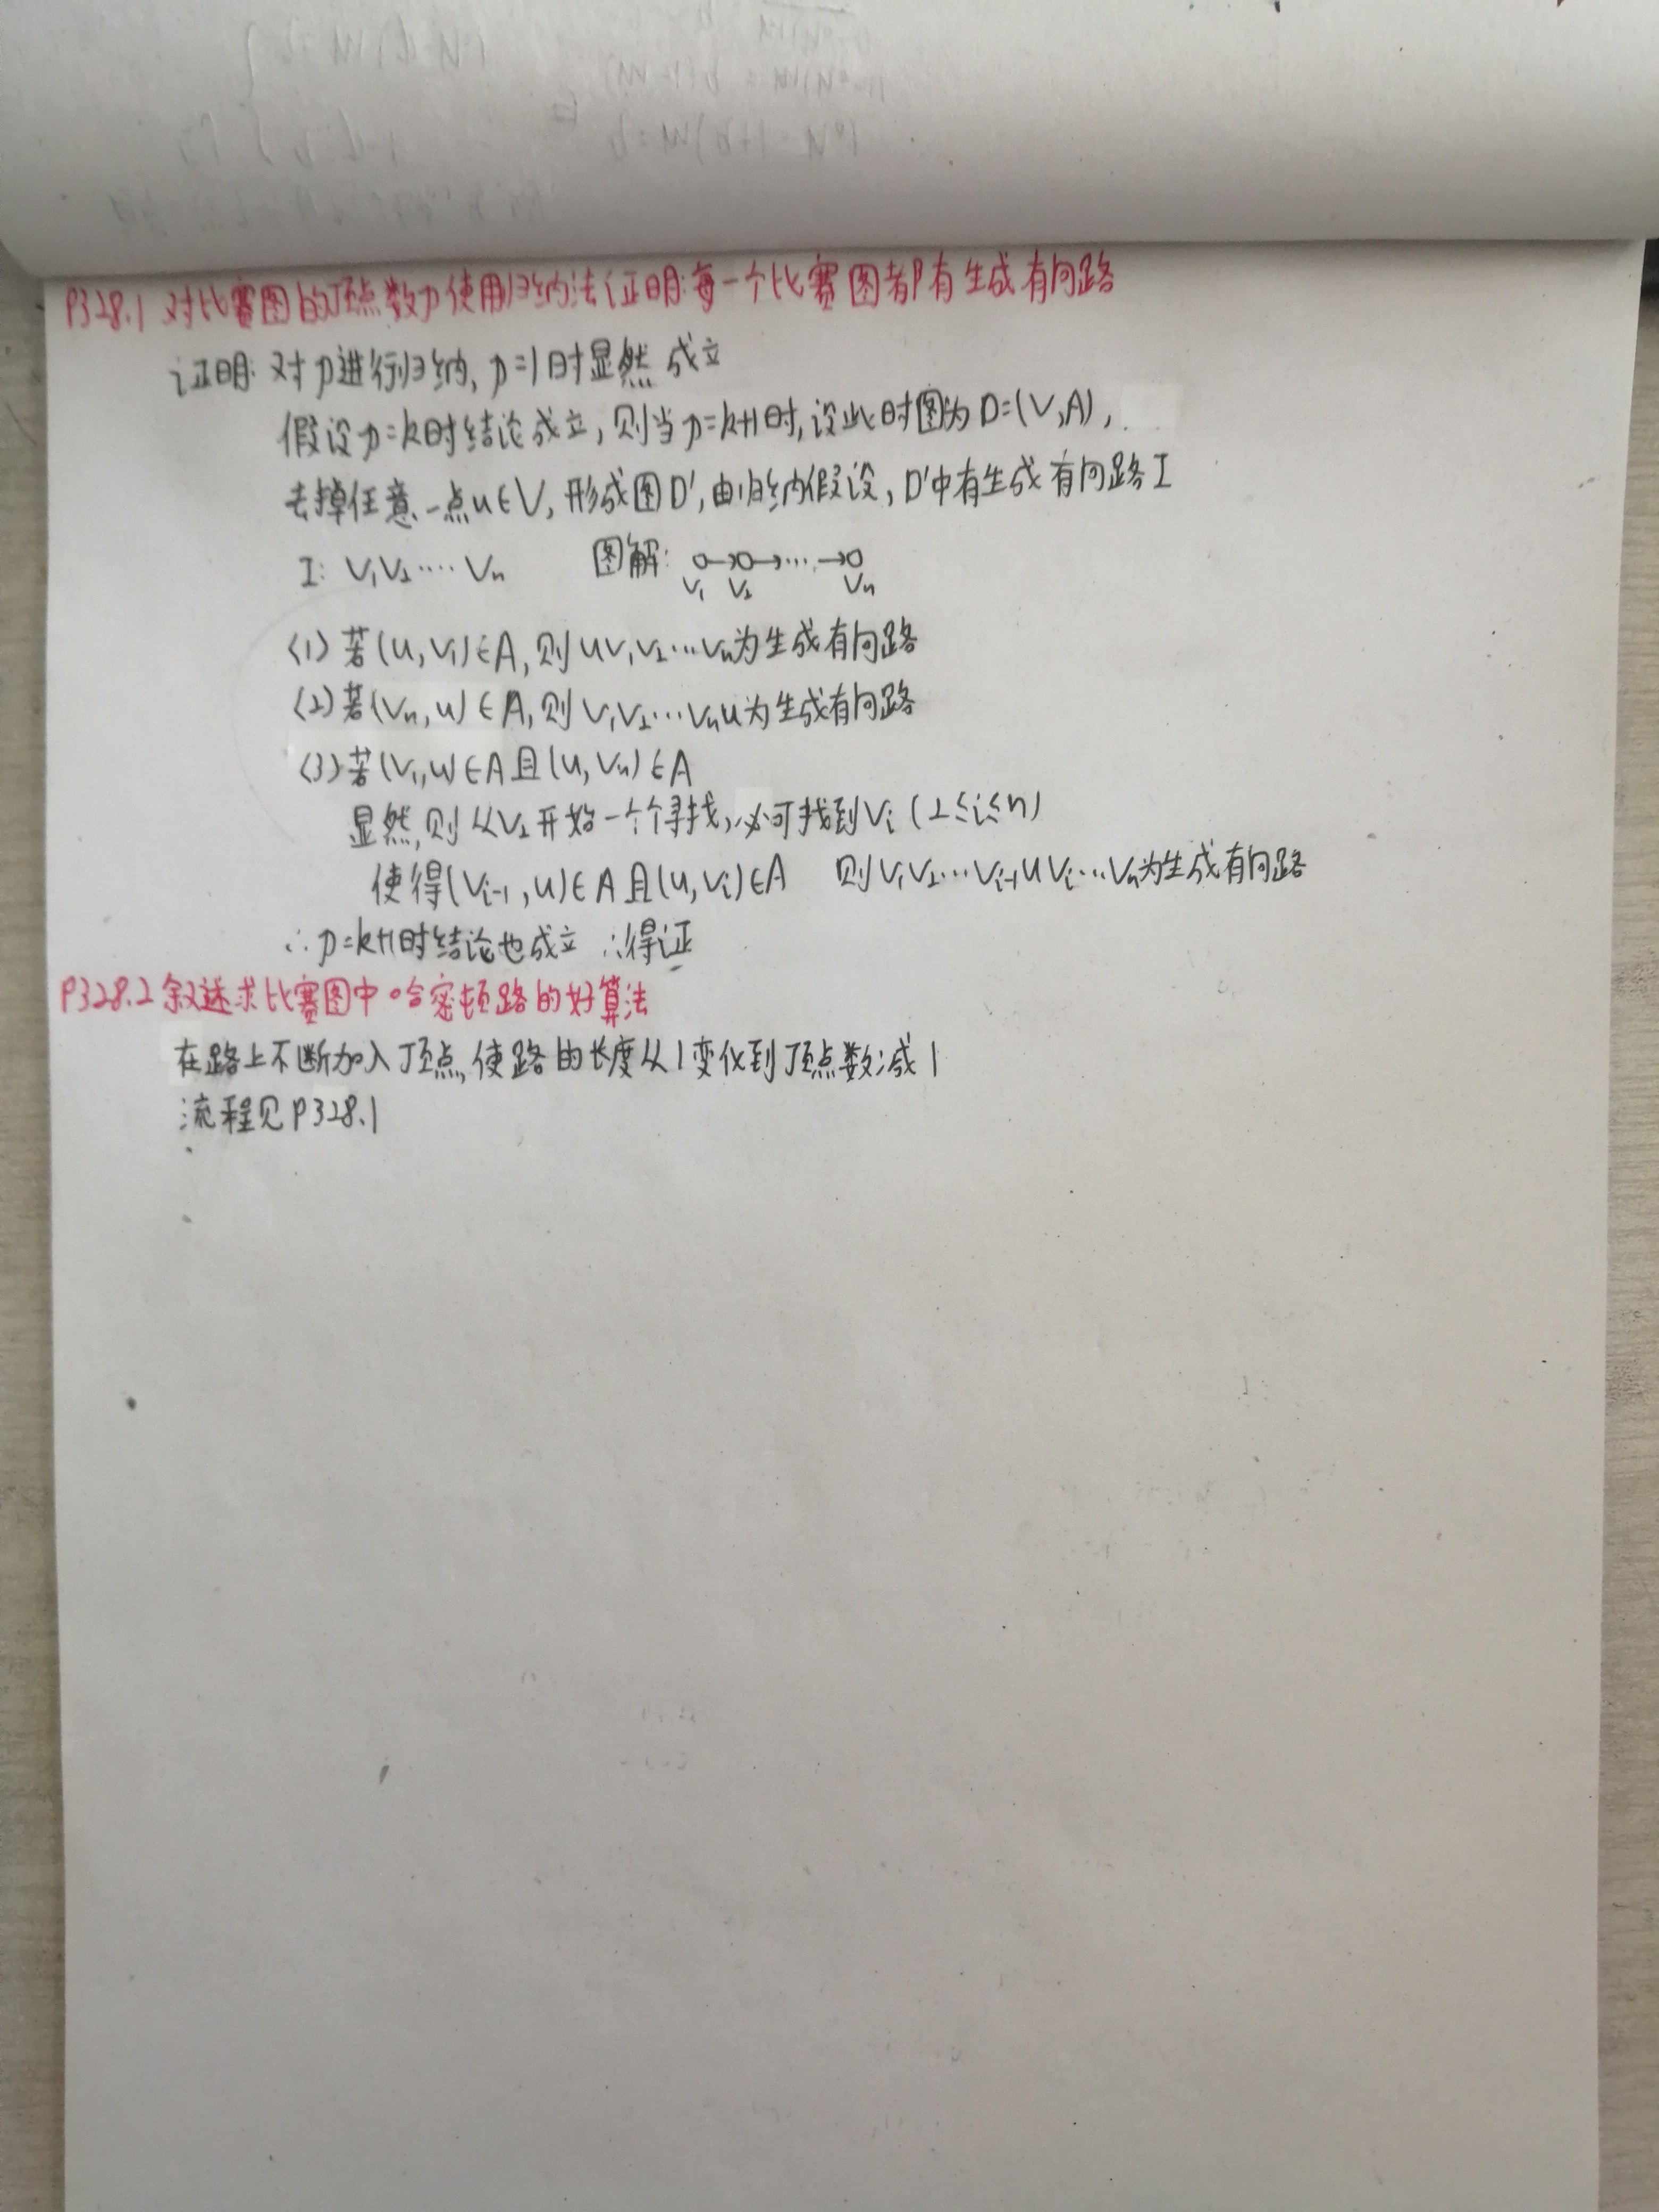 P328.1 对比赛图的顶点数p使用归纳法证明:每一个比赛图都有生成有向路
证明: 对p进行归纳, p=1时显然成立
假设p=k时结论成立, 则当p=k+1时, 设此时图为D=(V,A),
去掉任意一点u∈V, 形成图D', 由归纳假设, D'中有生成有向路I
I: V₁V₂····Vₙ 图解: o→o→···→o
V₁ V₂ Vₙ
(1) 若(u,V₁)∈A, 则uV₁V₂···Vₙ为生成有向路
(2) 若(Vₙ,u)∈A, 则V₁V₂···Vₙu为生成有向路
(3) 若(V₁,u)∈A且(u,Vₙ)∈A
显然, 则从V₂开始一个个寻找, 必可找到Vᵢ (2≤i≤n)
使得(Vᵢ₋₁,u)∈A且(u,Vᵢ)∈A 则V₁V₂···Vᵢ₋₁uVᵢ···Vₙ为生成有向路
∴p=k+1时结论也成立 ∴得证
P328.2 叙述求比赛图中哈密顿路的好算法
在路上不断加入顶点, 使路的长度从1变化到顶点数减1
流程见P328.1